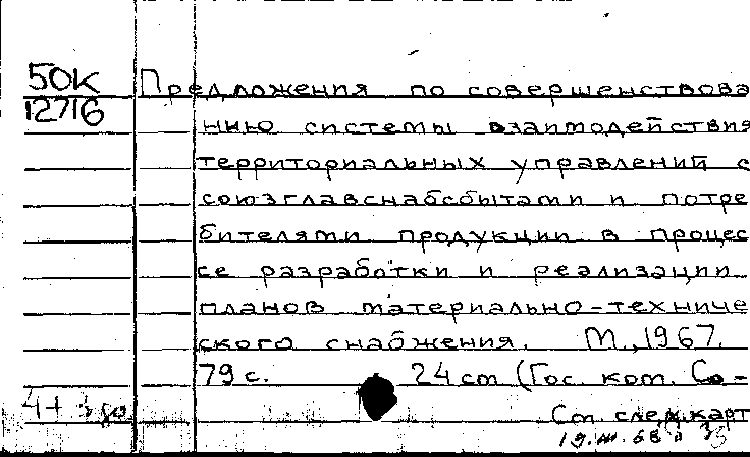 50К
12716
Предложения по совершенствова
нию системы взаимодействия
территориальных управлений с
союзглавснабсбытами и потре
бителями продукции в процес
се разработки и реализации
планов материально-техниче
ского снабжения. М., 1967.
79 с. 24 см (Гос. ком. Со-
См след.карт